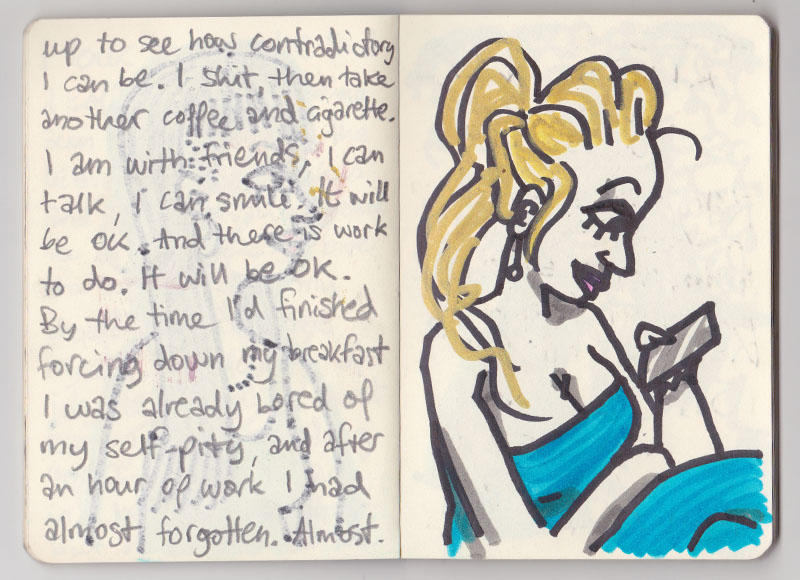 up to see how contradictory
I can be. I shit, then take
another coffee and cigarette.
I am with friends, I can
talk, I can smile. It will
be OK. And there is work
to do. It will be OK.
By the time I'd finished
forcing down my breakfast
I was already bored of
my self-pity, and after
an hour of work I had
almost forgotten. Almost.